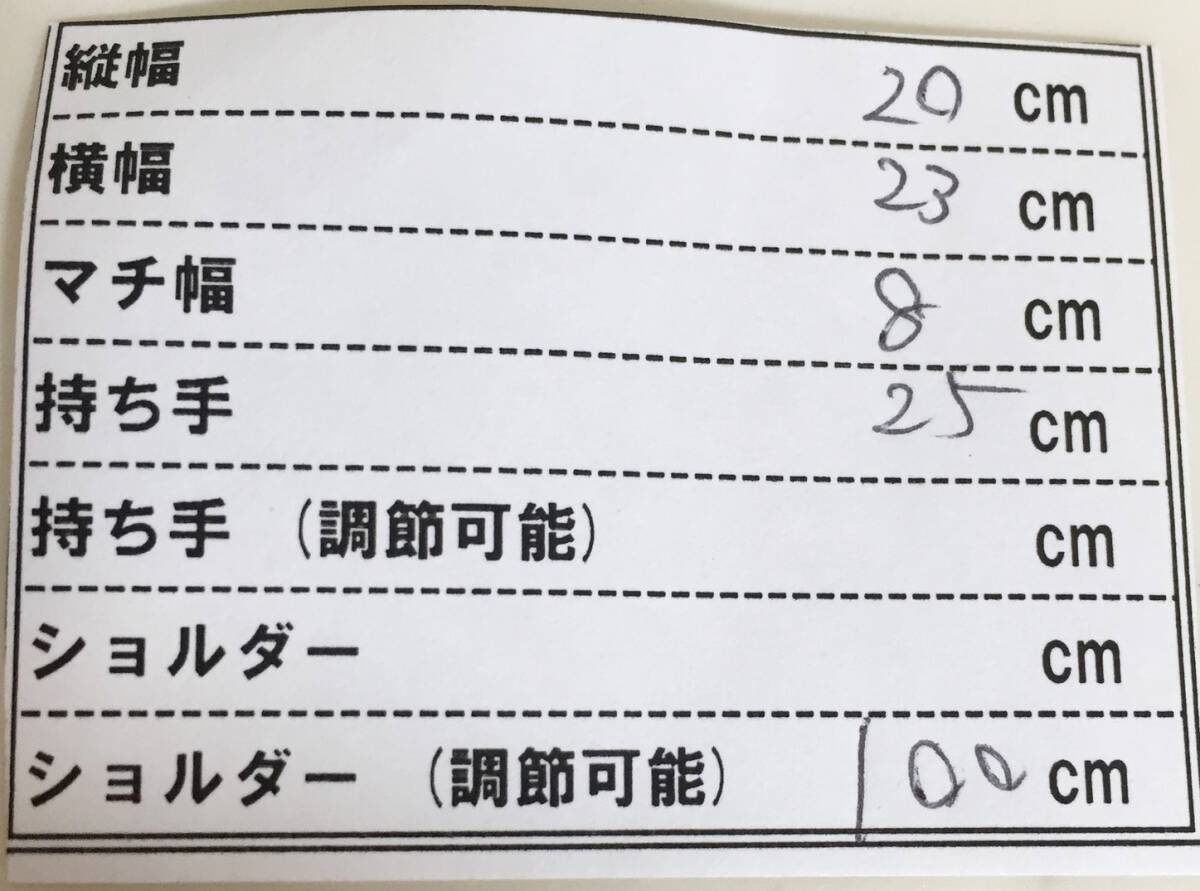 縦幅 20 cm
横幅 23 cm
マチ幅 8 cm
持ち手 25 cm
持ち手 (調節可能) cm
ショルダー cm
ショルダー (調節可能) 100 cm